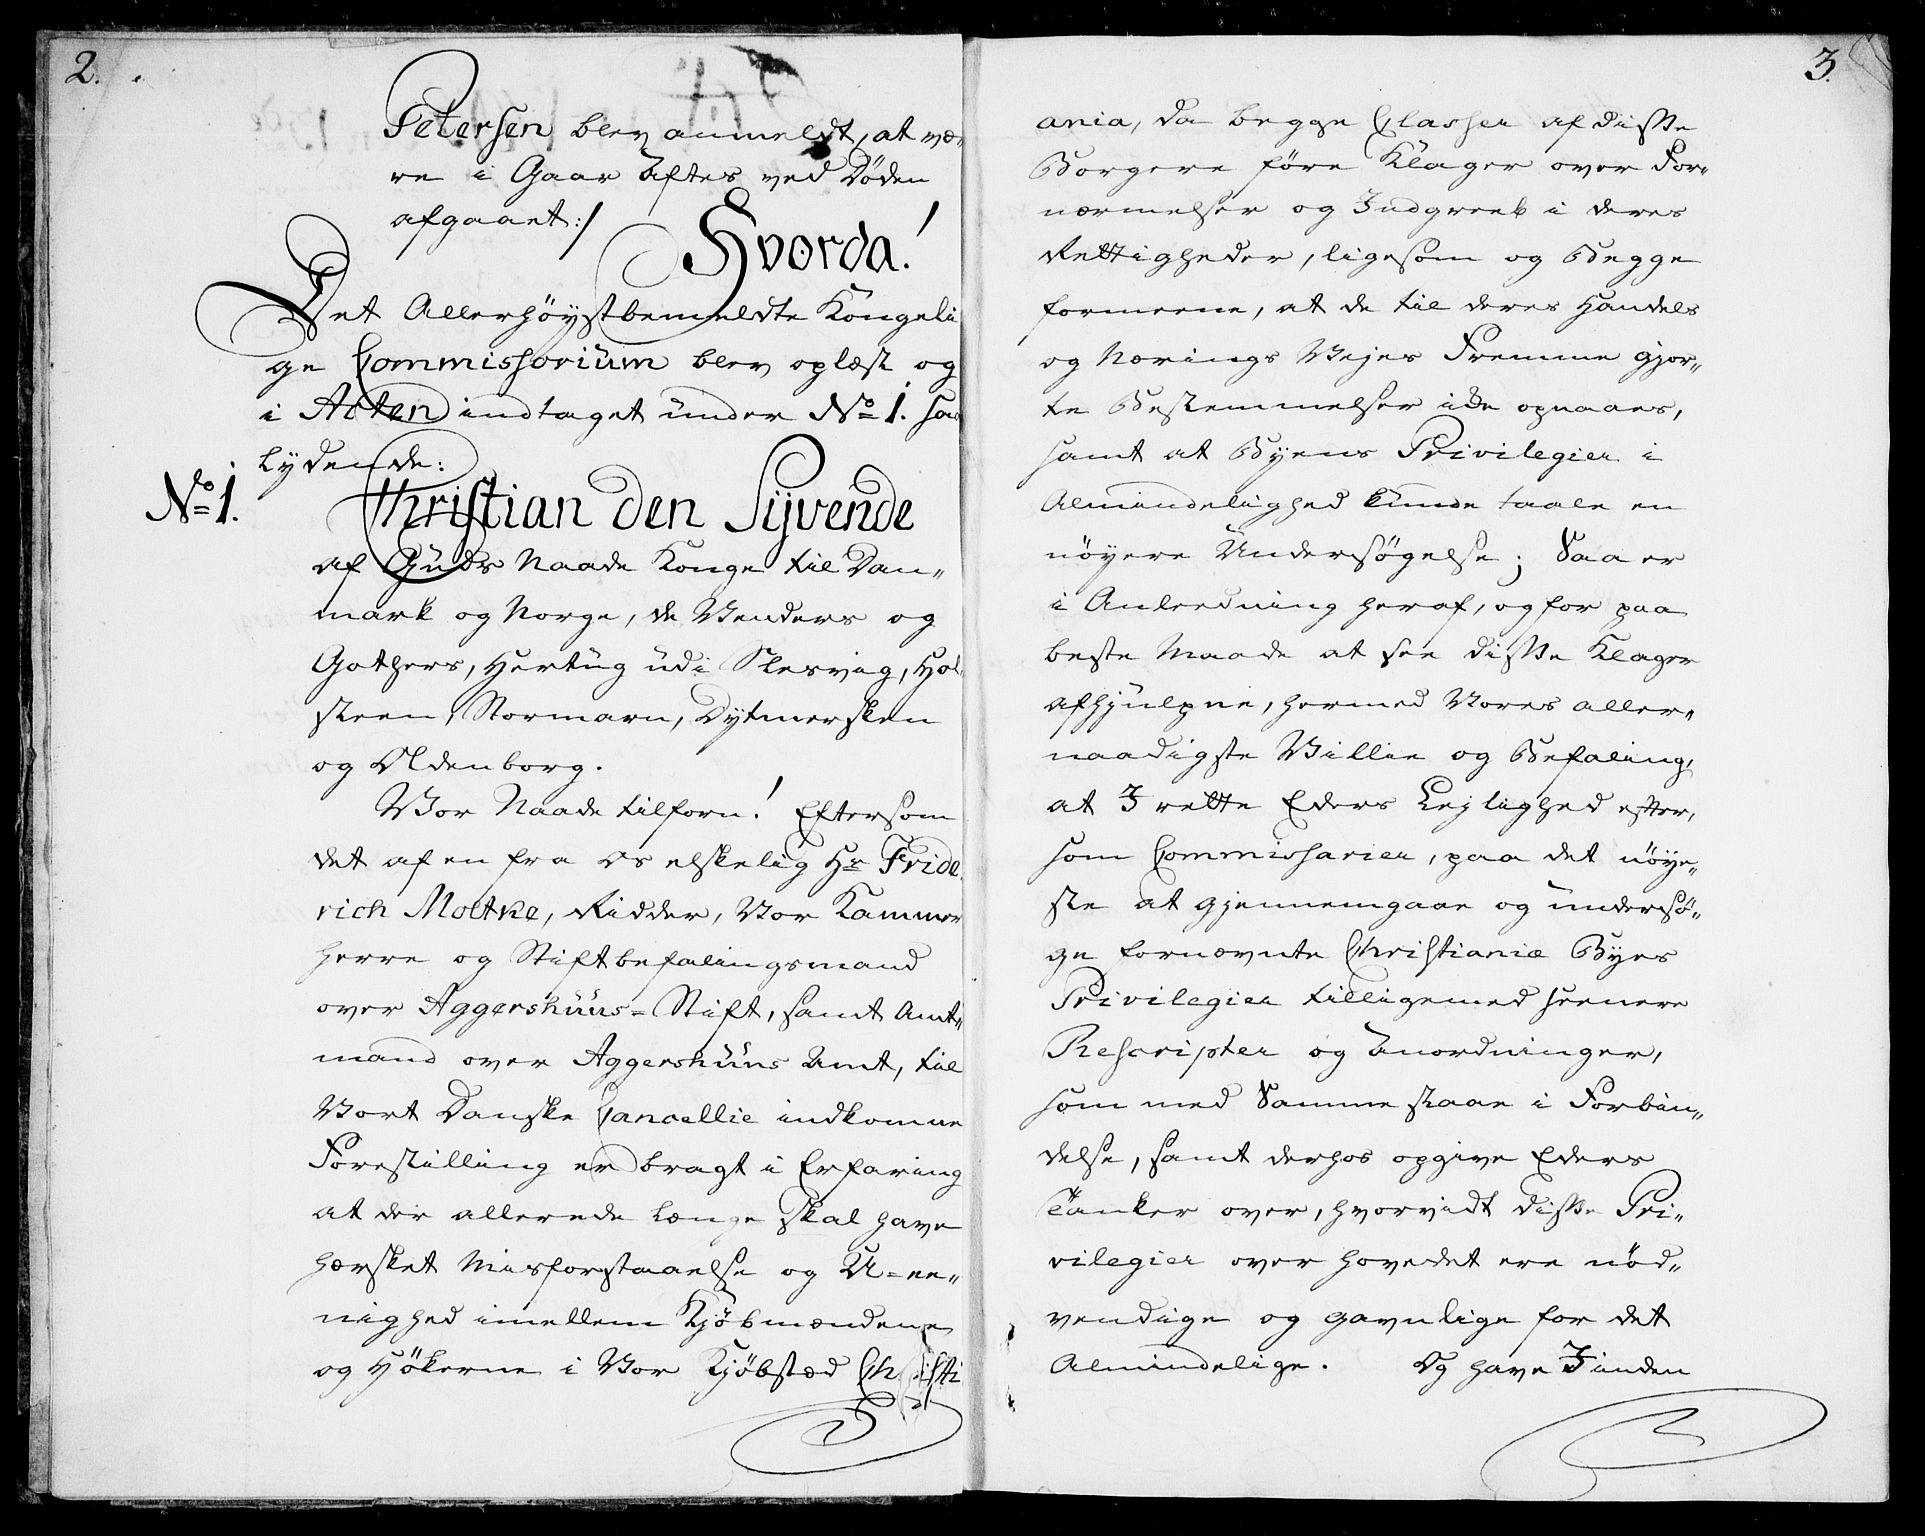 2.
Petersen blev anmeldt, at væ-
re i Gaar Aftes ved Døden
afgaaet:/
Hvorda!
Det Allerhöystbemeldte Kongeli
ge Commissorium blev oplæst og
i Acten indtaget under No 1. saa
lydende:
No 1.
Christian den Sÿvende
af Guds Naade Konge til Dan„
mark og Norge, de Venders og
Gothers, Hertug udi Slesvig, Hol
steen, Stormarn, Dytmersken
og Oldenborg.
Vor Naade tilforn! Eftersom
det af en fra os elskelig Hr Fride
rich Moltke, Ridder, Vor Kammer
herre og Stiftbefalingsmand
over Aggershuus=Stift, samt Amt„
mand over Aggershuus Amt, til
Vort Danske Cancellie indkomne
Forestilling er bragt i Erfaring
at der allerede længe skal have
hersket Misforstaaelse og U=ee„
nighed imellem Kjøbmændene
og Hökerne i Vor Kjøbstæd Christi
3.
ania, da begge Classer af disse
Borgere före Klager over For„
nærmelser og Indgreeb i deres
Rettigheder, ligesom og Begge
formeene, at de til deres Handels
og Nærings Vejes Fremme gjor„
te Bestemmelser icke opnaaes,
samt at Byens Privilegier i
Almindelighed kunde taale en
nöyere Undersøgelse; Saa er
i Anledning heraf, og for paa
beste Maade at see disse Klager
afhjulpne, hermed Vores aller„
naadigste Villie og Befaling,
at I rette Eders Lejlighed efter,
som Commissarier, paa det nöye„
ste at gjennemgaae og undersö„
ge fornævnte Christianiæ Byes
Privilegier tilligemed seenere
Rescripter og Anordninger,
som med Samme staae i Forbin„
delse, samt derhos opgive Eders
Tanker over, hvorvidt disse Pri„
vilegier over hovedet ere nöd„
vendige og gavnlige for det
Almindelige. Og have I inden